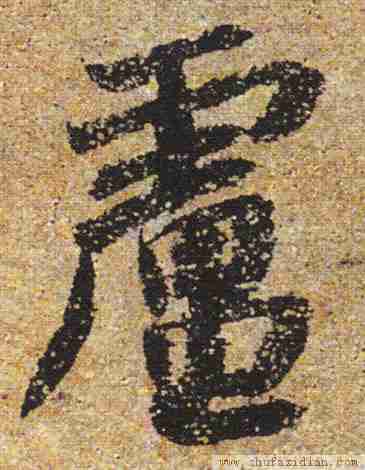 盧
www.shufazidian.com